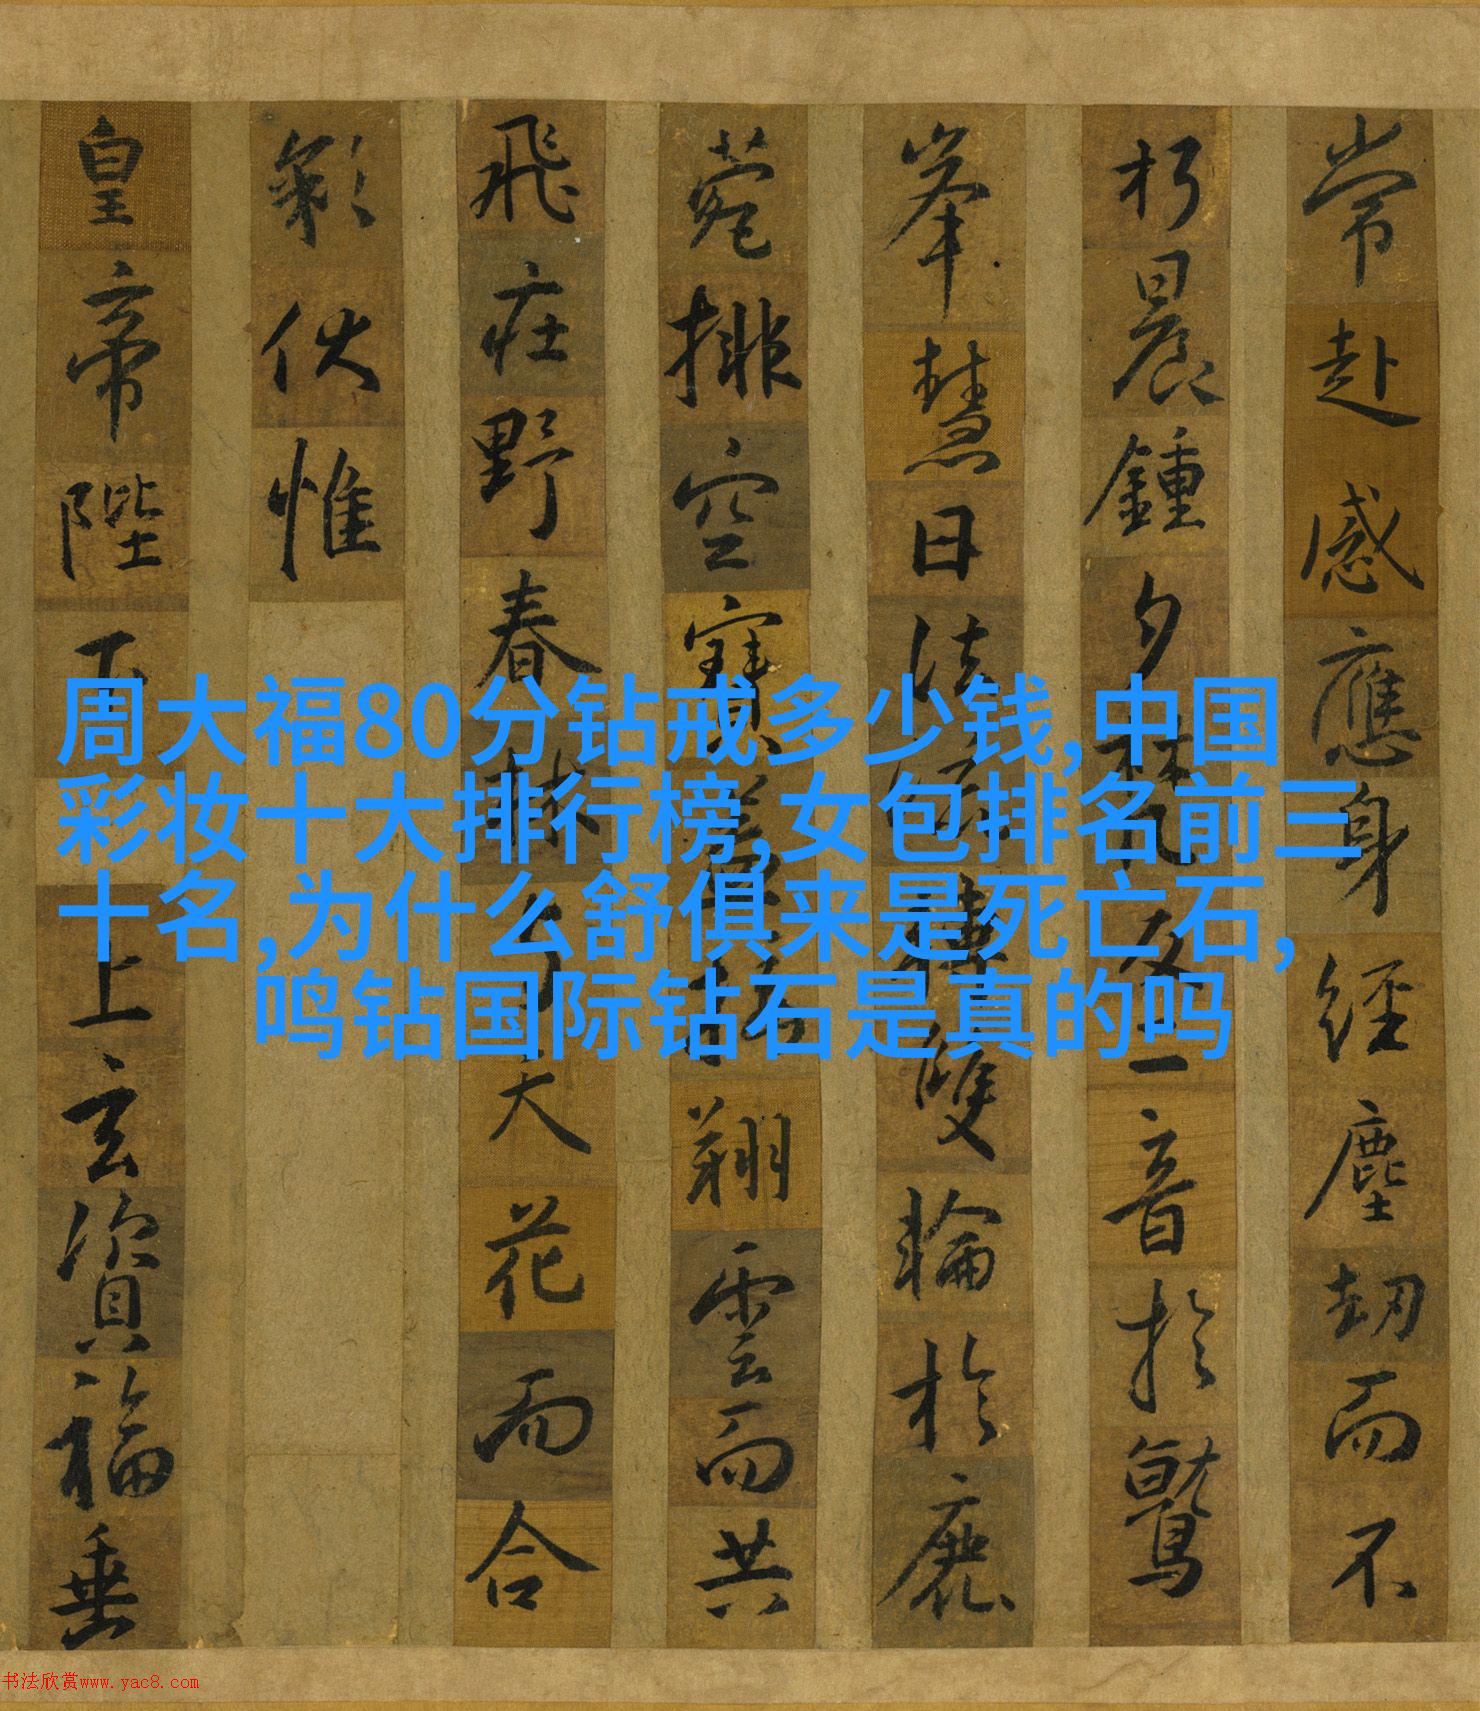 常赴感應身經塵劫而不
朽晨鍾夕梵交二音於鷲
峯慧日法流轉雙輪於鹿
菀排空寶蓋接翔雲而共
飛莊野春林與天花而合
彩伏惟
皇帝陛下上玄資福垂
周大福80分钻戒多少钱,中国
彩妆十大排行榜,女包排名前三
十名,为什么舒俱来是死亡石,
鸣钻国际钻石是真的吗
书法欣赏www.yac8.com